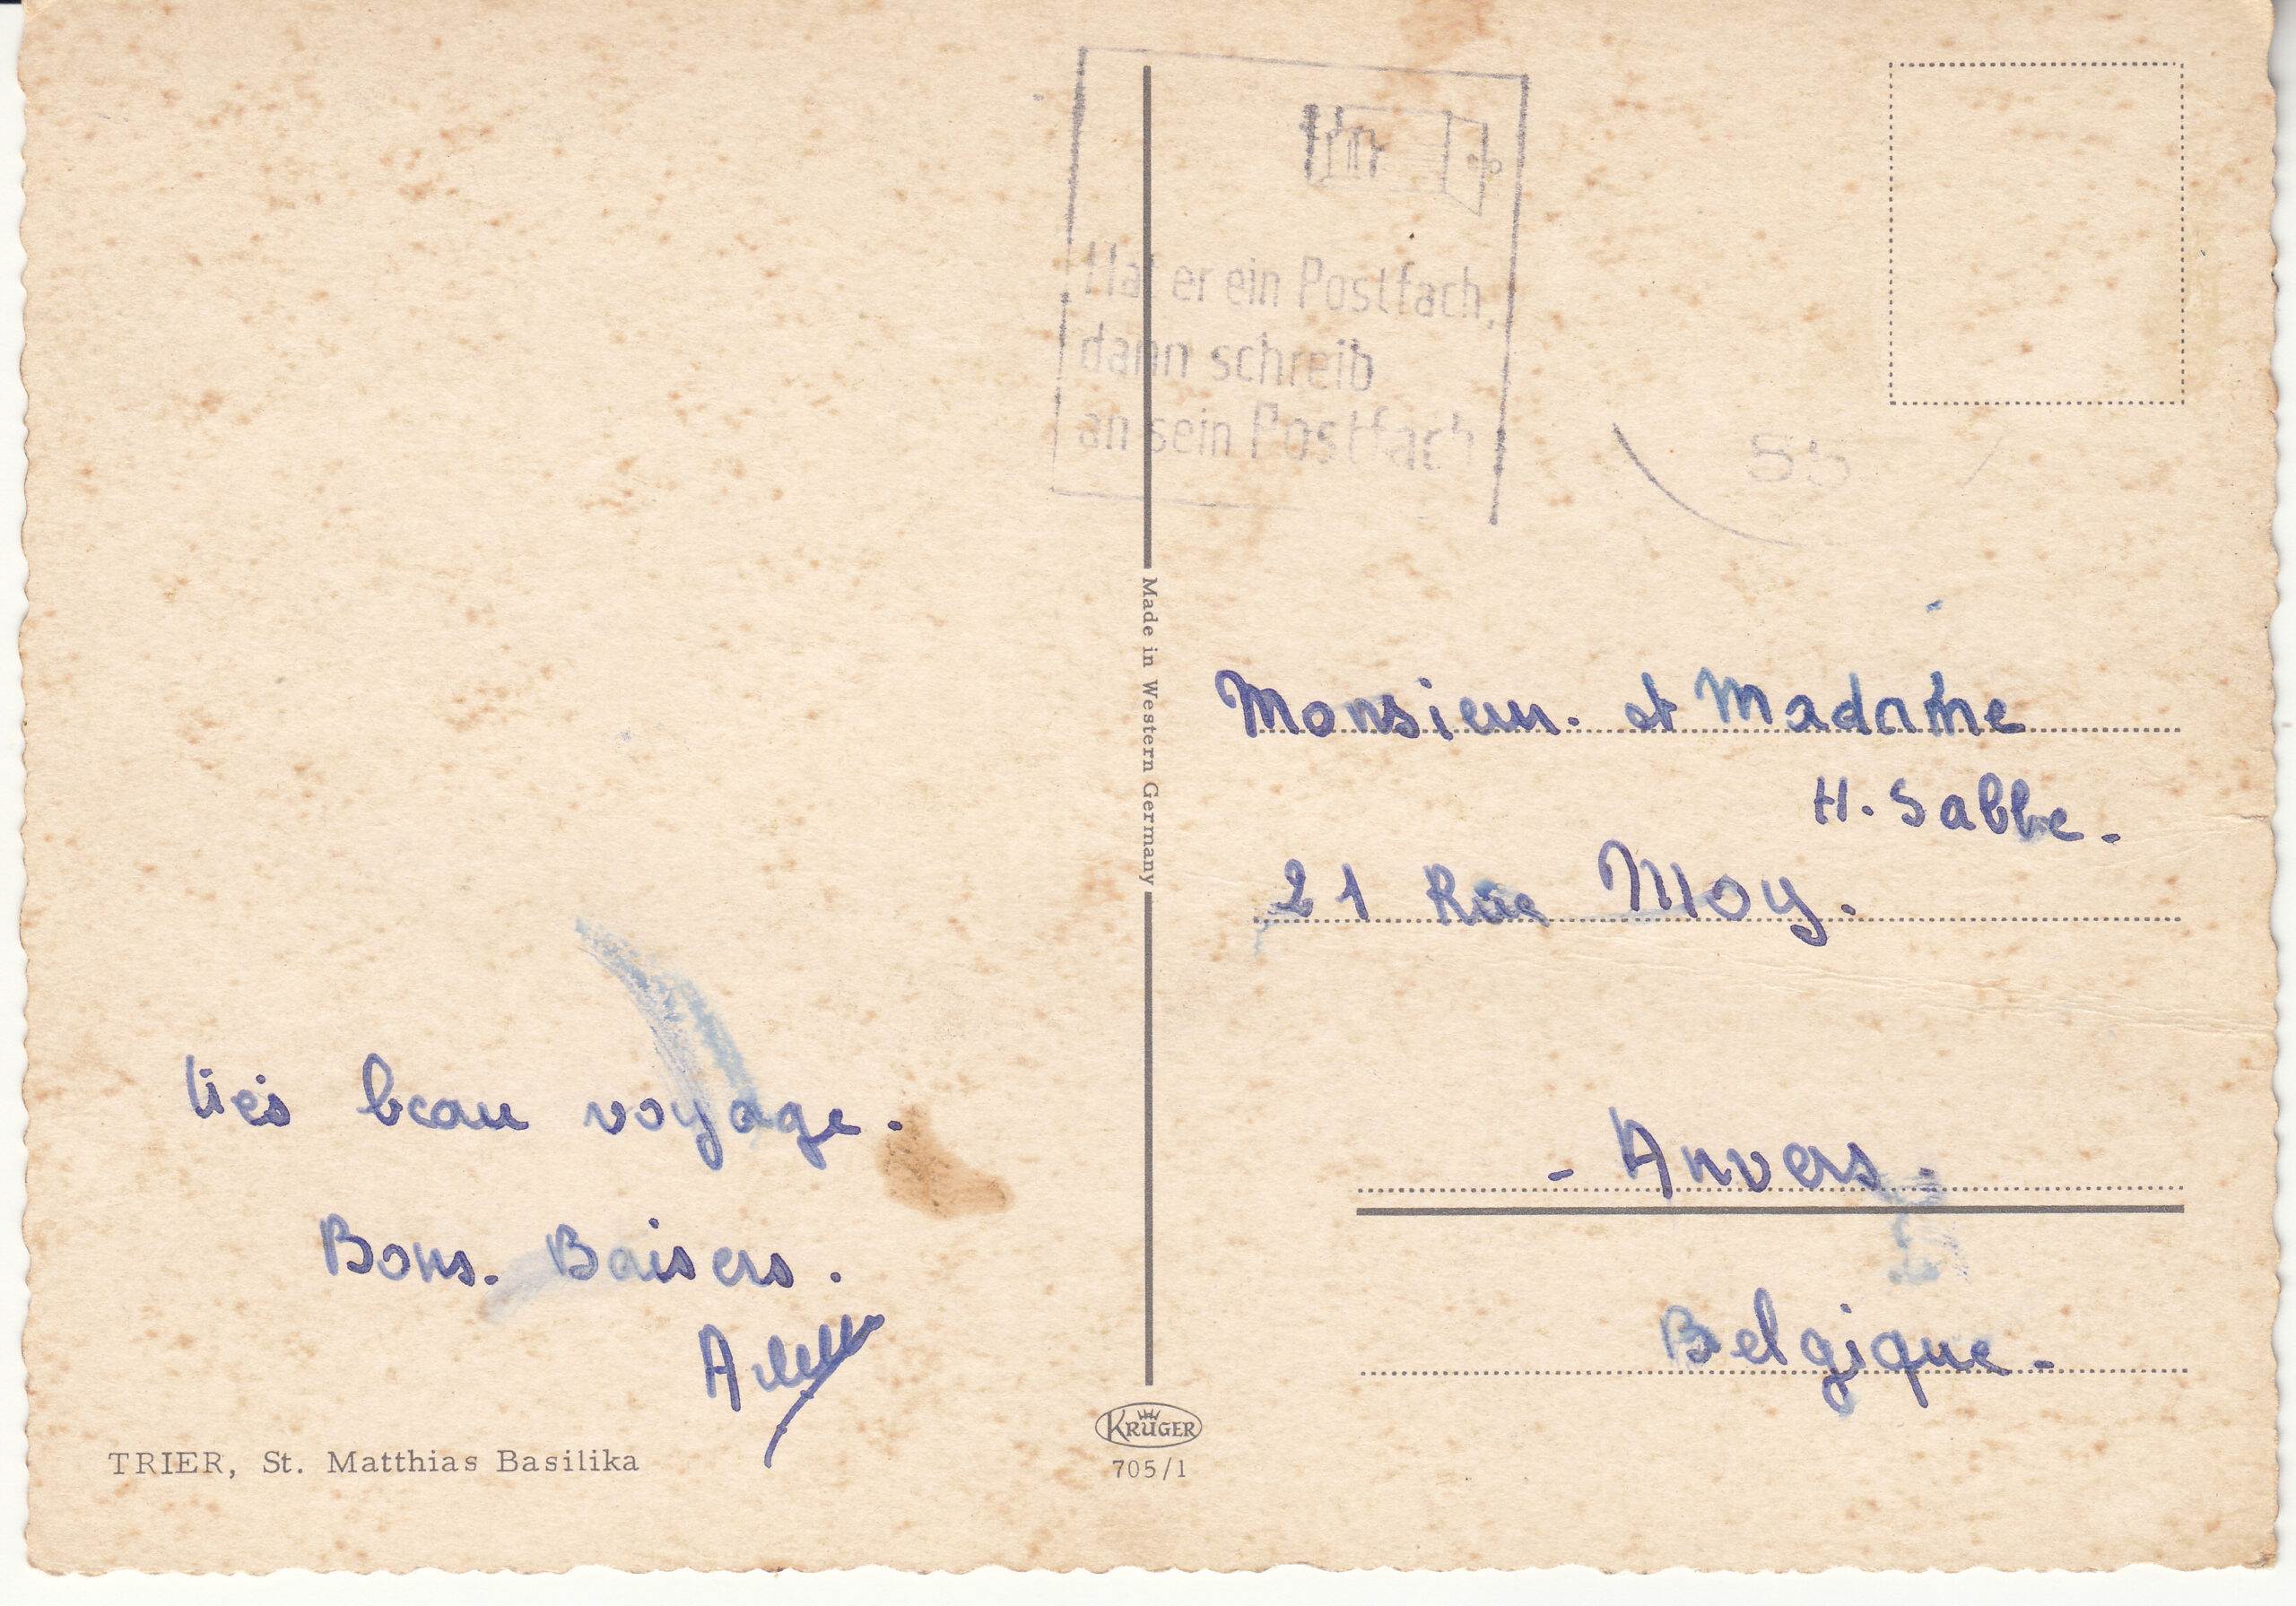 Hat er ein Postfach,
dann schreib
an sein Postfach
55
Made in Western Germany
Monsieur. et Madame
H. Sabbe.
21 Rue Moy.
- Anvers.
Belgique.
très beau voyage.
Bons. Baisers.
TRIER, St. Matthias Basilika
KRÜGER
705/1